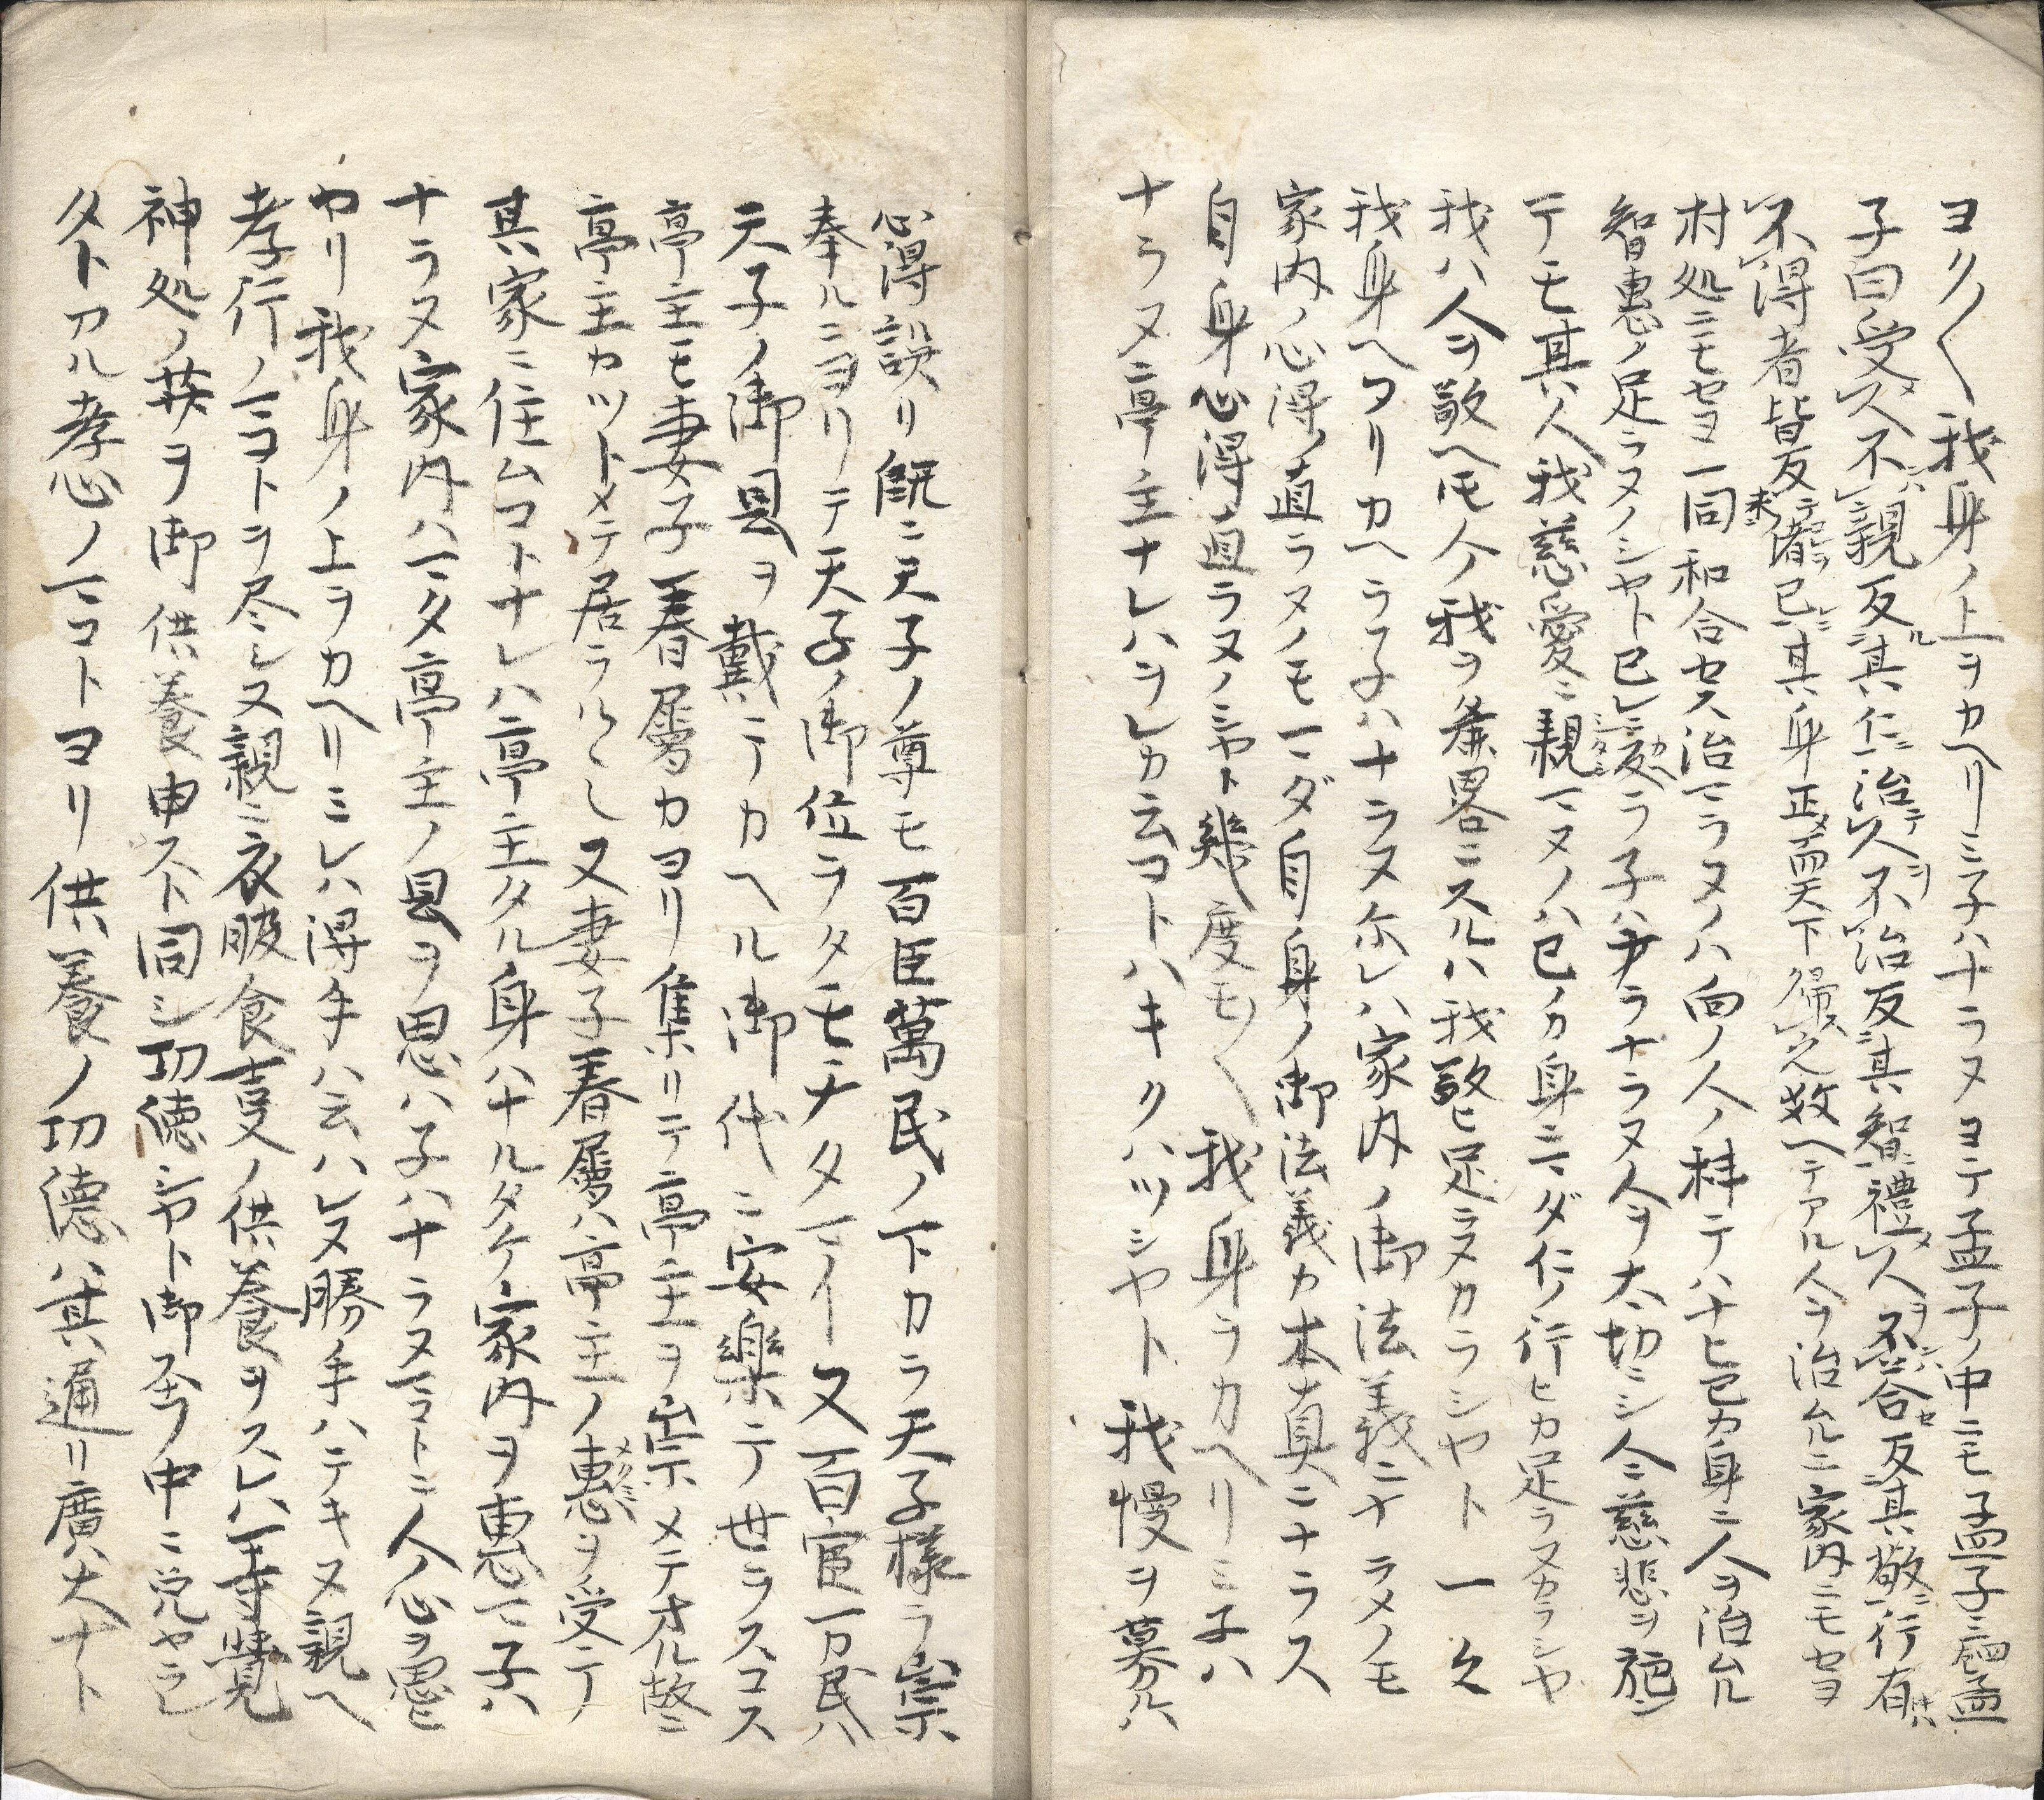 ヨク〱我身ノ上ヲカヘリミ子ハナラヌヨテ孟子ノ中ニモ孟子ニ曰孟
子曰受人不親反其仁治人不治反其智禮人不答反其敬行有
不得者皆反求諸己其身正而天下歸之教ヘテアル人ヲ治ルニ家内ニモセヨ
村処ニモセヨ一同和合セス治マラヌノハ向ノ人ノ科テハナヒ己カ身ニ人ヲ治ムル
智惠ノ足ラヌノシヤト己レニ返ラ子ハナラヌ人ヲ大切ニシ人ニ慈悲ヲ施シ
テモ其人我慈愛ニ親マヌノハ己ノカ身ニマダ仁ノ行ヒカ足ラヌカラシヤ
我ハ人ヲ敬ヘモ人我ヲ麁畧ニスルハ我敬ヒ足ラヌカラシヤト一々
我身ヘフリカヘラ子ハナラヌ尓レハ家内ノ御法義ニナラヌノモ
家内ノ心得ノ直ラヌノモマダ自身ノ御法義カ本真ニナラス
自身心得直ラヌノシヤト幾度モ〱我身ラカヘリミ子ハ
ナラヌニ亭主ナレハヲレカ云コトハキクハツシヤト我慢ヲ募ルハ
心得誤リ既ニ天子ノ尊モ百臣萬民ノ下カラ天子様ラ崇
奉ルニヨリテ天子ノ御位ラタモチタマイ又百官万民ハ
天子ノ御恩ヲ戴テカヘル御代ニ安樂テ世ラスコス
亭主モ妻子眷属カヨリ集リテ亭主ヲ崇メテオル故ニ
亭主カツトメテ居ラルヽシ又妻子眷属ハ亭主ノ惠ミヲ受テ
其家ニ住ムコトナレハ亭主タル身ハナルタケ家内ヲ惠マ子ハ
ナラヌ家内ハマタ亭主ノ恩ヲ思ハ子ハナラヌマコトニ人ノ心ヲ思ヒ
ヤリ我身ノ上ヲカヘリミレハ得手ハ云ハレヌ勝手ハテキヌ親ヘ
孝行ノマコトヲ尽シ又親ニ衣服食喜ノ供養ヲスレハ等覺
神処ノ菩ヲ御供養申スト同シ功德シヤト御釈ノ中ニ説セラレ
タトアル孝心ノマコトヨリ供養ノ功德ハ其通リ廣大ナト